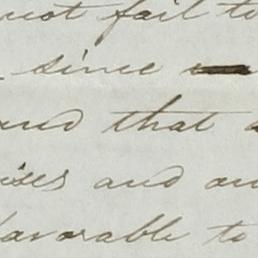 not fail to
since
and that
ises and
favorable to